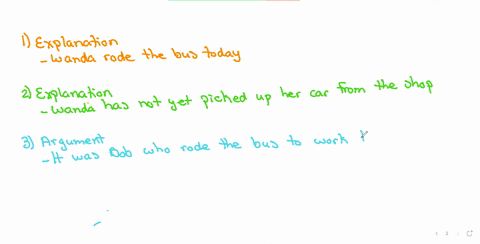 1) Explanation
- Wanda rode the bus today
2) Explanation
- Wanda has not yet picked up her car from the shop
3) Argument
- It was Bob who rode the bus to work